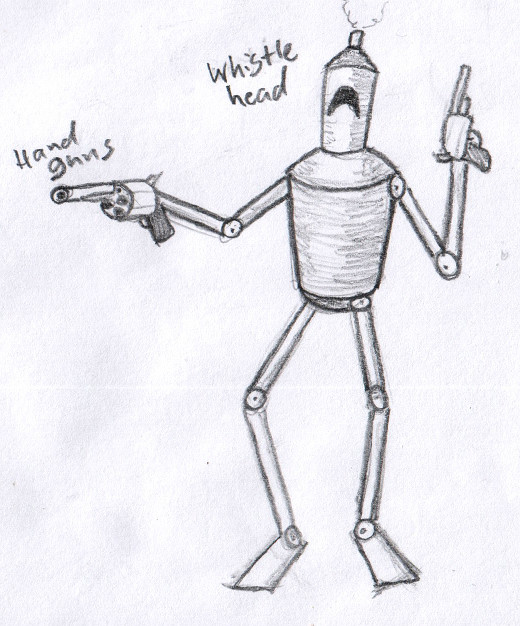 Whistle
head
Hand
guns